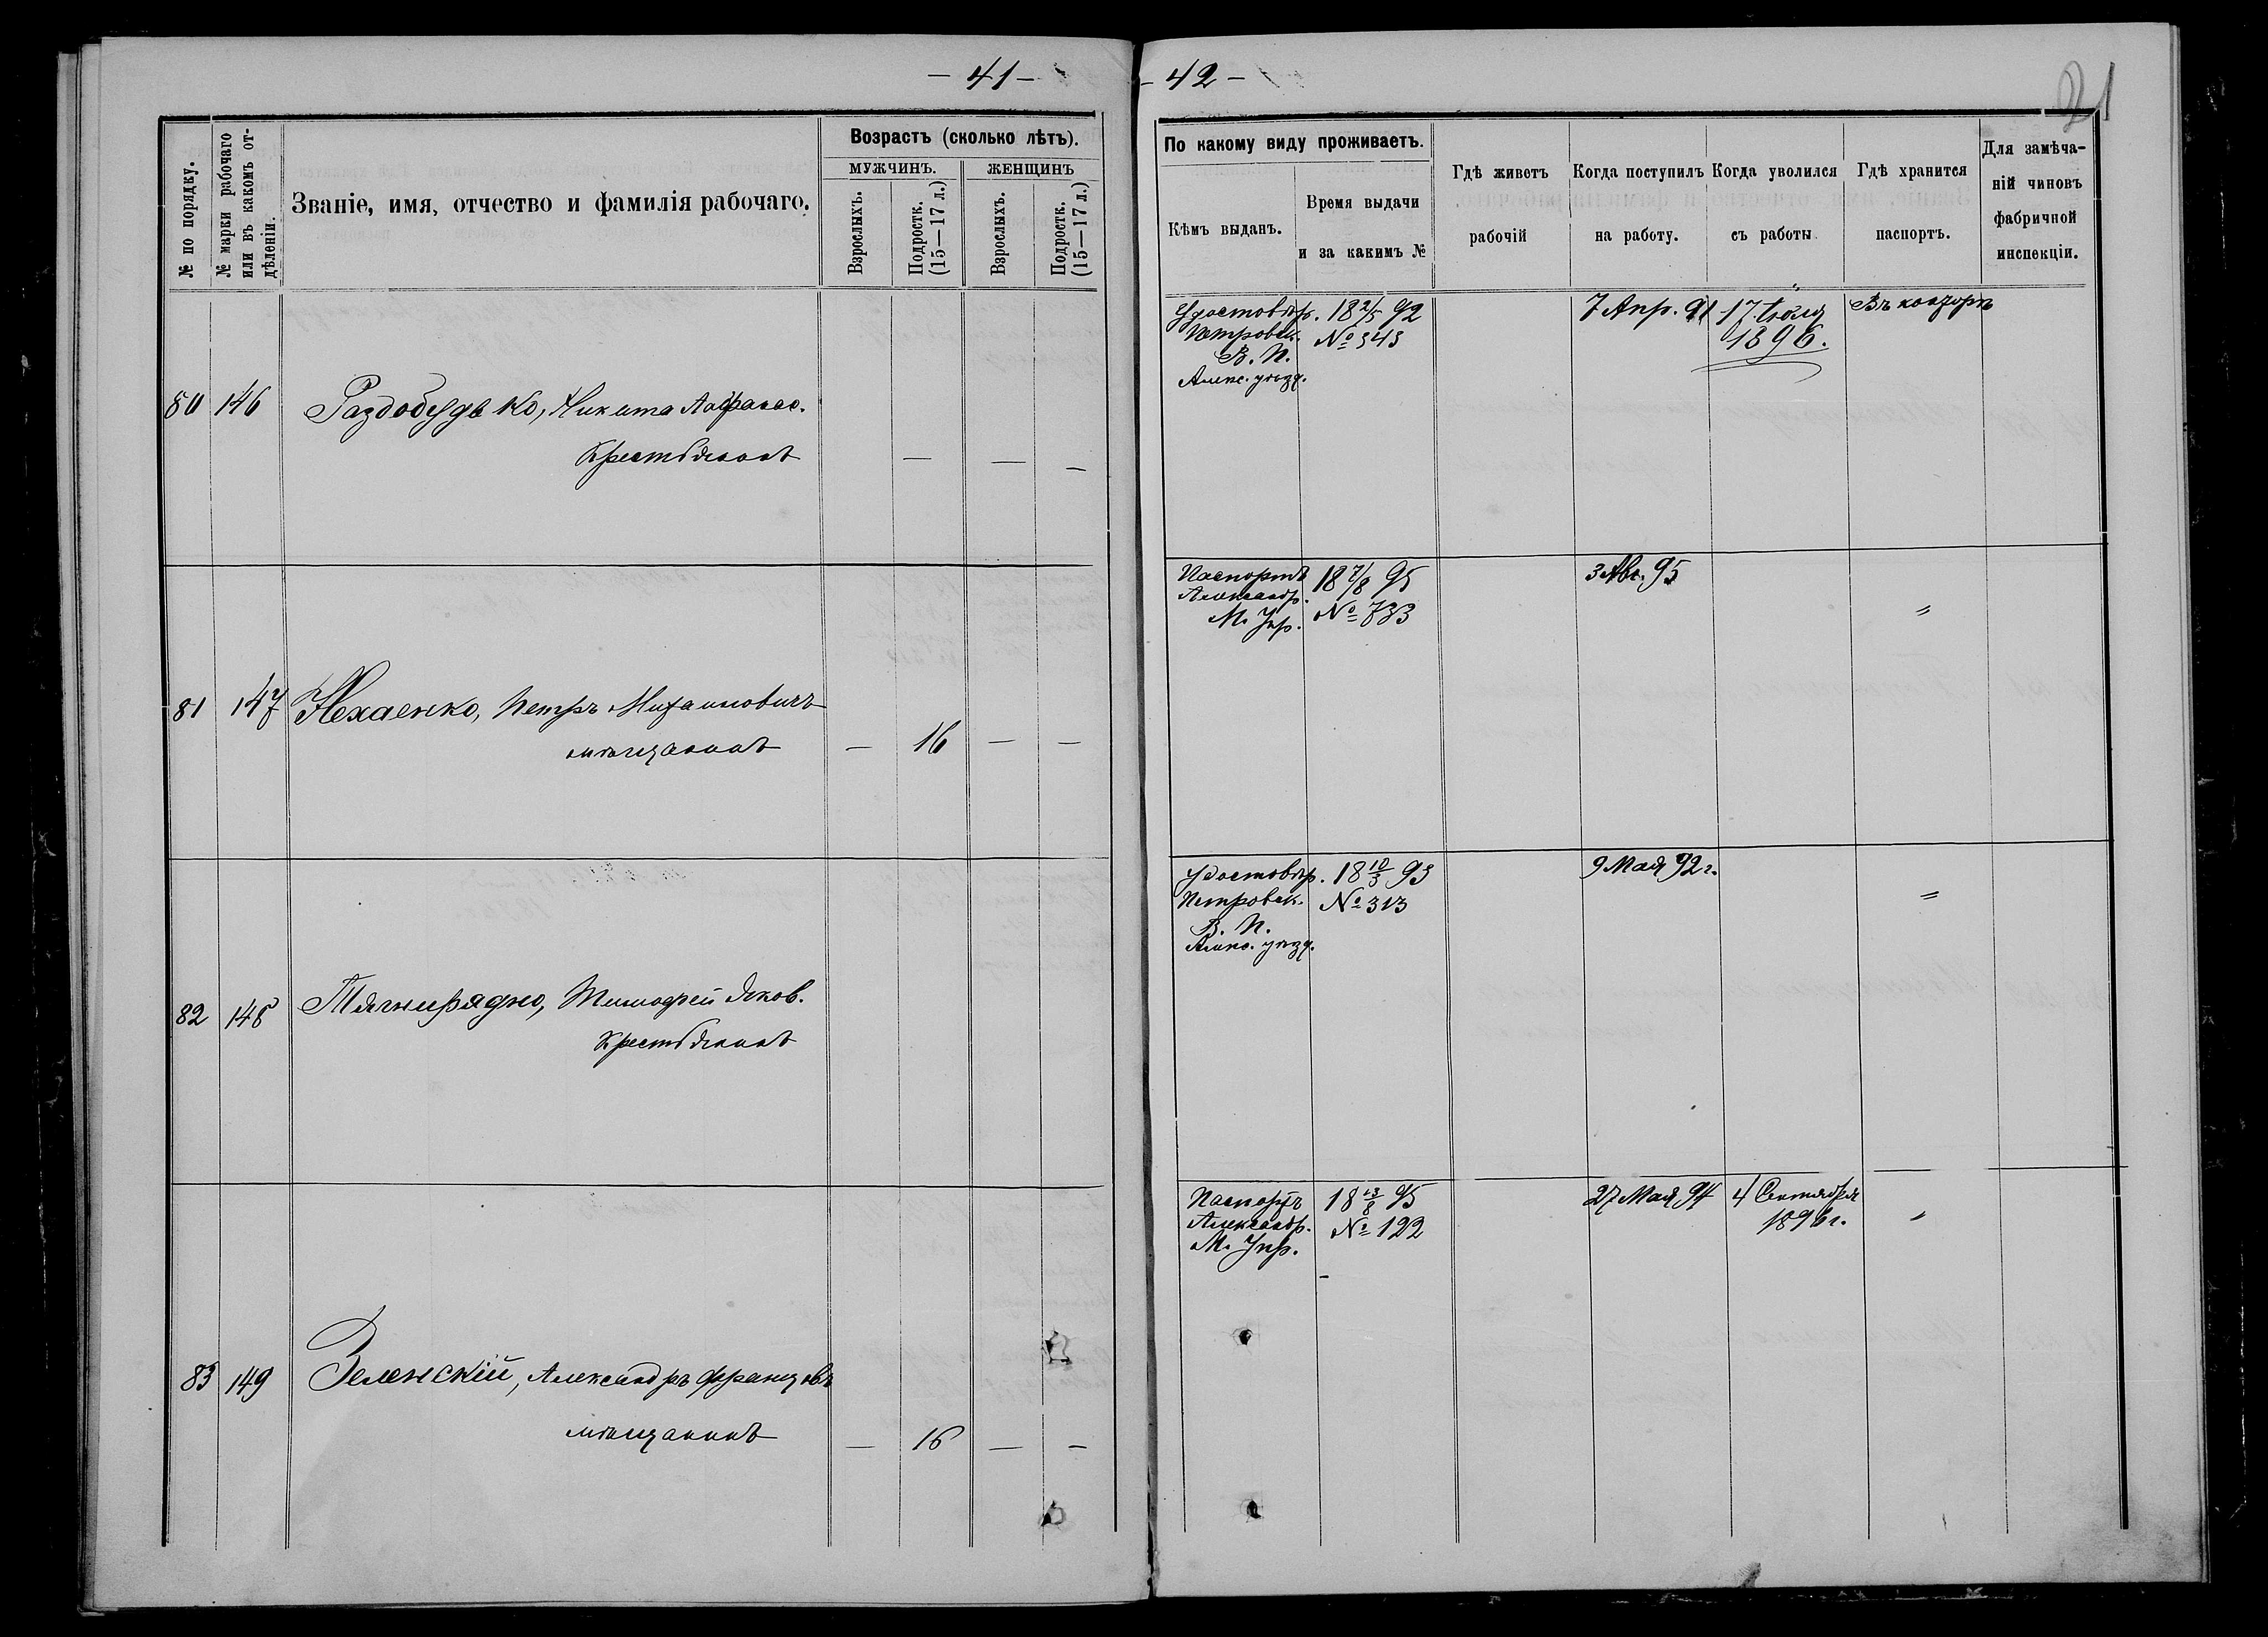 - 41 -
№ по порядку.
№ марки рабочаго или въ какомъ отдѣленіи.
Званіе, имя, отчество и фамилія рабочаго.
Возрастъ (сколько лѣтъ).
МУЖЧИНЪ.
ЖЕНЩИНЪ
Взрослыхъ.
Подростк. (15—17 л.)
Взрослыхъ.
Подростк. (15—17 л.)
80 146 Раздобудько, Никита Афанас.
Крестьянинъ — — —
81 147 Нехаенко, Петръ Михаиловичъ
мѣщанинъ — 16 — —
82 148 Тягнирядно, Тимофей Яков.
Крестьянинъ
83 149 Зеленскій, Александръ Францовъ
мѣщанинъ — 16 — —
- 42 -
21
По какому виду проживаетъ.
Кѣмъ выданъ.
Время выдачи
и за какимъ №
Гдѣ живетъ
рабочій
Когда поступилъ
на работу.
Когда уволился
съ работы
Гдѣ хранится
паспортъ.
Для замѣча-
ній чиновъ
фабричной
инспекціи.
Удостовѣр. 18 2/5 92 7 Апр. 91 17 Іюля Въ конторѣ
Петровск. № 343 1896.
В. П.
Алекс. уѣзд.
Паспортъ 18 7/8 95 3 Авг. 95
Александр. № 733 "
М. Упр.
Удостовѣр. 18 10/3 93 9 Мая 92 г.
Петровск. № 313 "
В. П.
Алекс. уѣзд.
Паспортъ 18 13/8 95 27 Мая 94 4 Сентября
Александр. № 122 1896 г. "
М. Упр.